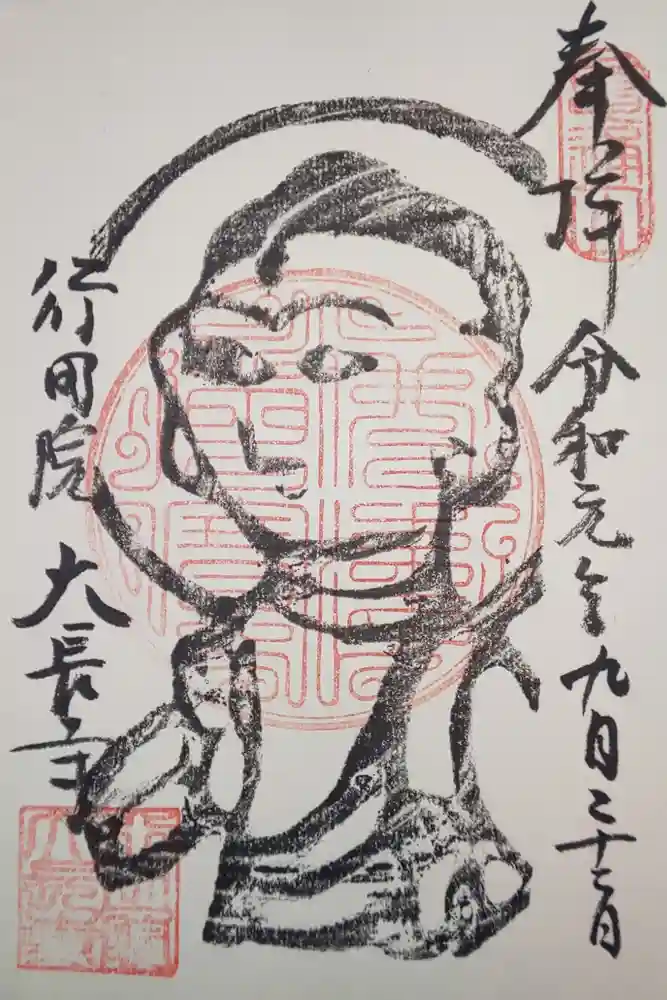 奉拝
令和元年九月二十二日
行田院 大長寺